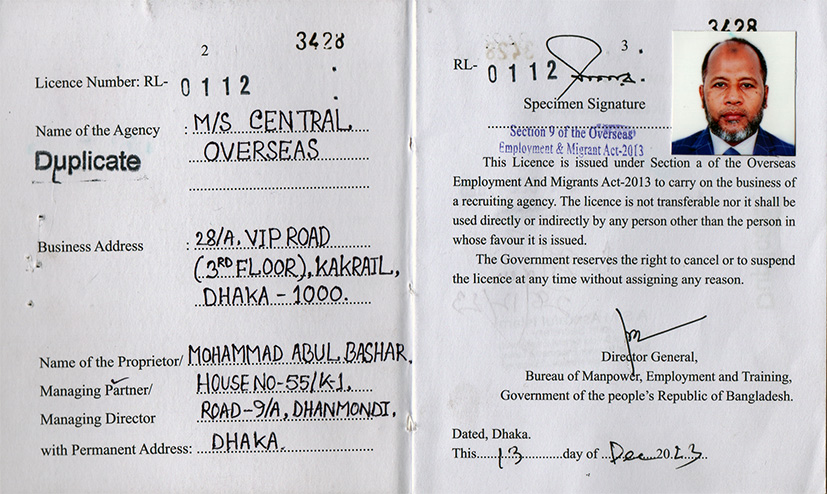 2
3428
Licence Number: RL- 0112
Name of the Agency : M/S CENTRAL
OVERSEAS
Duplicate
Business Address : 28/A, VIP ROAD
(3RD FLOOR), KAKRAIL,
DHAKA - 1000.
Name of the Proprietor/ MOHAMMAD ABUL BASHAR,
Managing Partner/ HOUSE NO-55/K-1.
Managing Director ROAD-9/A, DHANMONDI,
with Permanent Address: DHAKA.
3428
3
RL- 0112
Specimen Signature
Section 9 of the Overseas
Employment & Migrant Act-2013
This Licence is issued under Section a of the Overseas
Employment And Migrants Act-2013 to carry on the business of
a recruiting agency. The licence is not transferable nor it shall be
used directly or indirectly by any person other than the person in
whose favour it is issued.
The Government reserves the right to cancel or to suspend
the licence at any time without assigning any reason.
Director General,
Bureau of Manpower, Employment and Training,
Government of the people's Republic of Bangladesh.
Dated, Dhaka.
This 13 day of Dec 2023